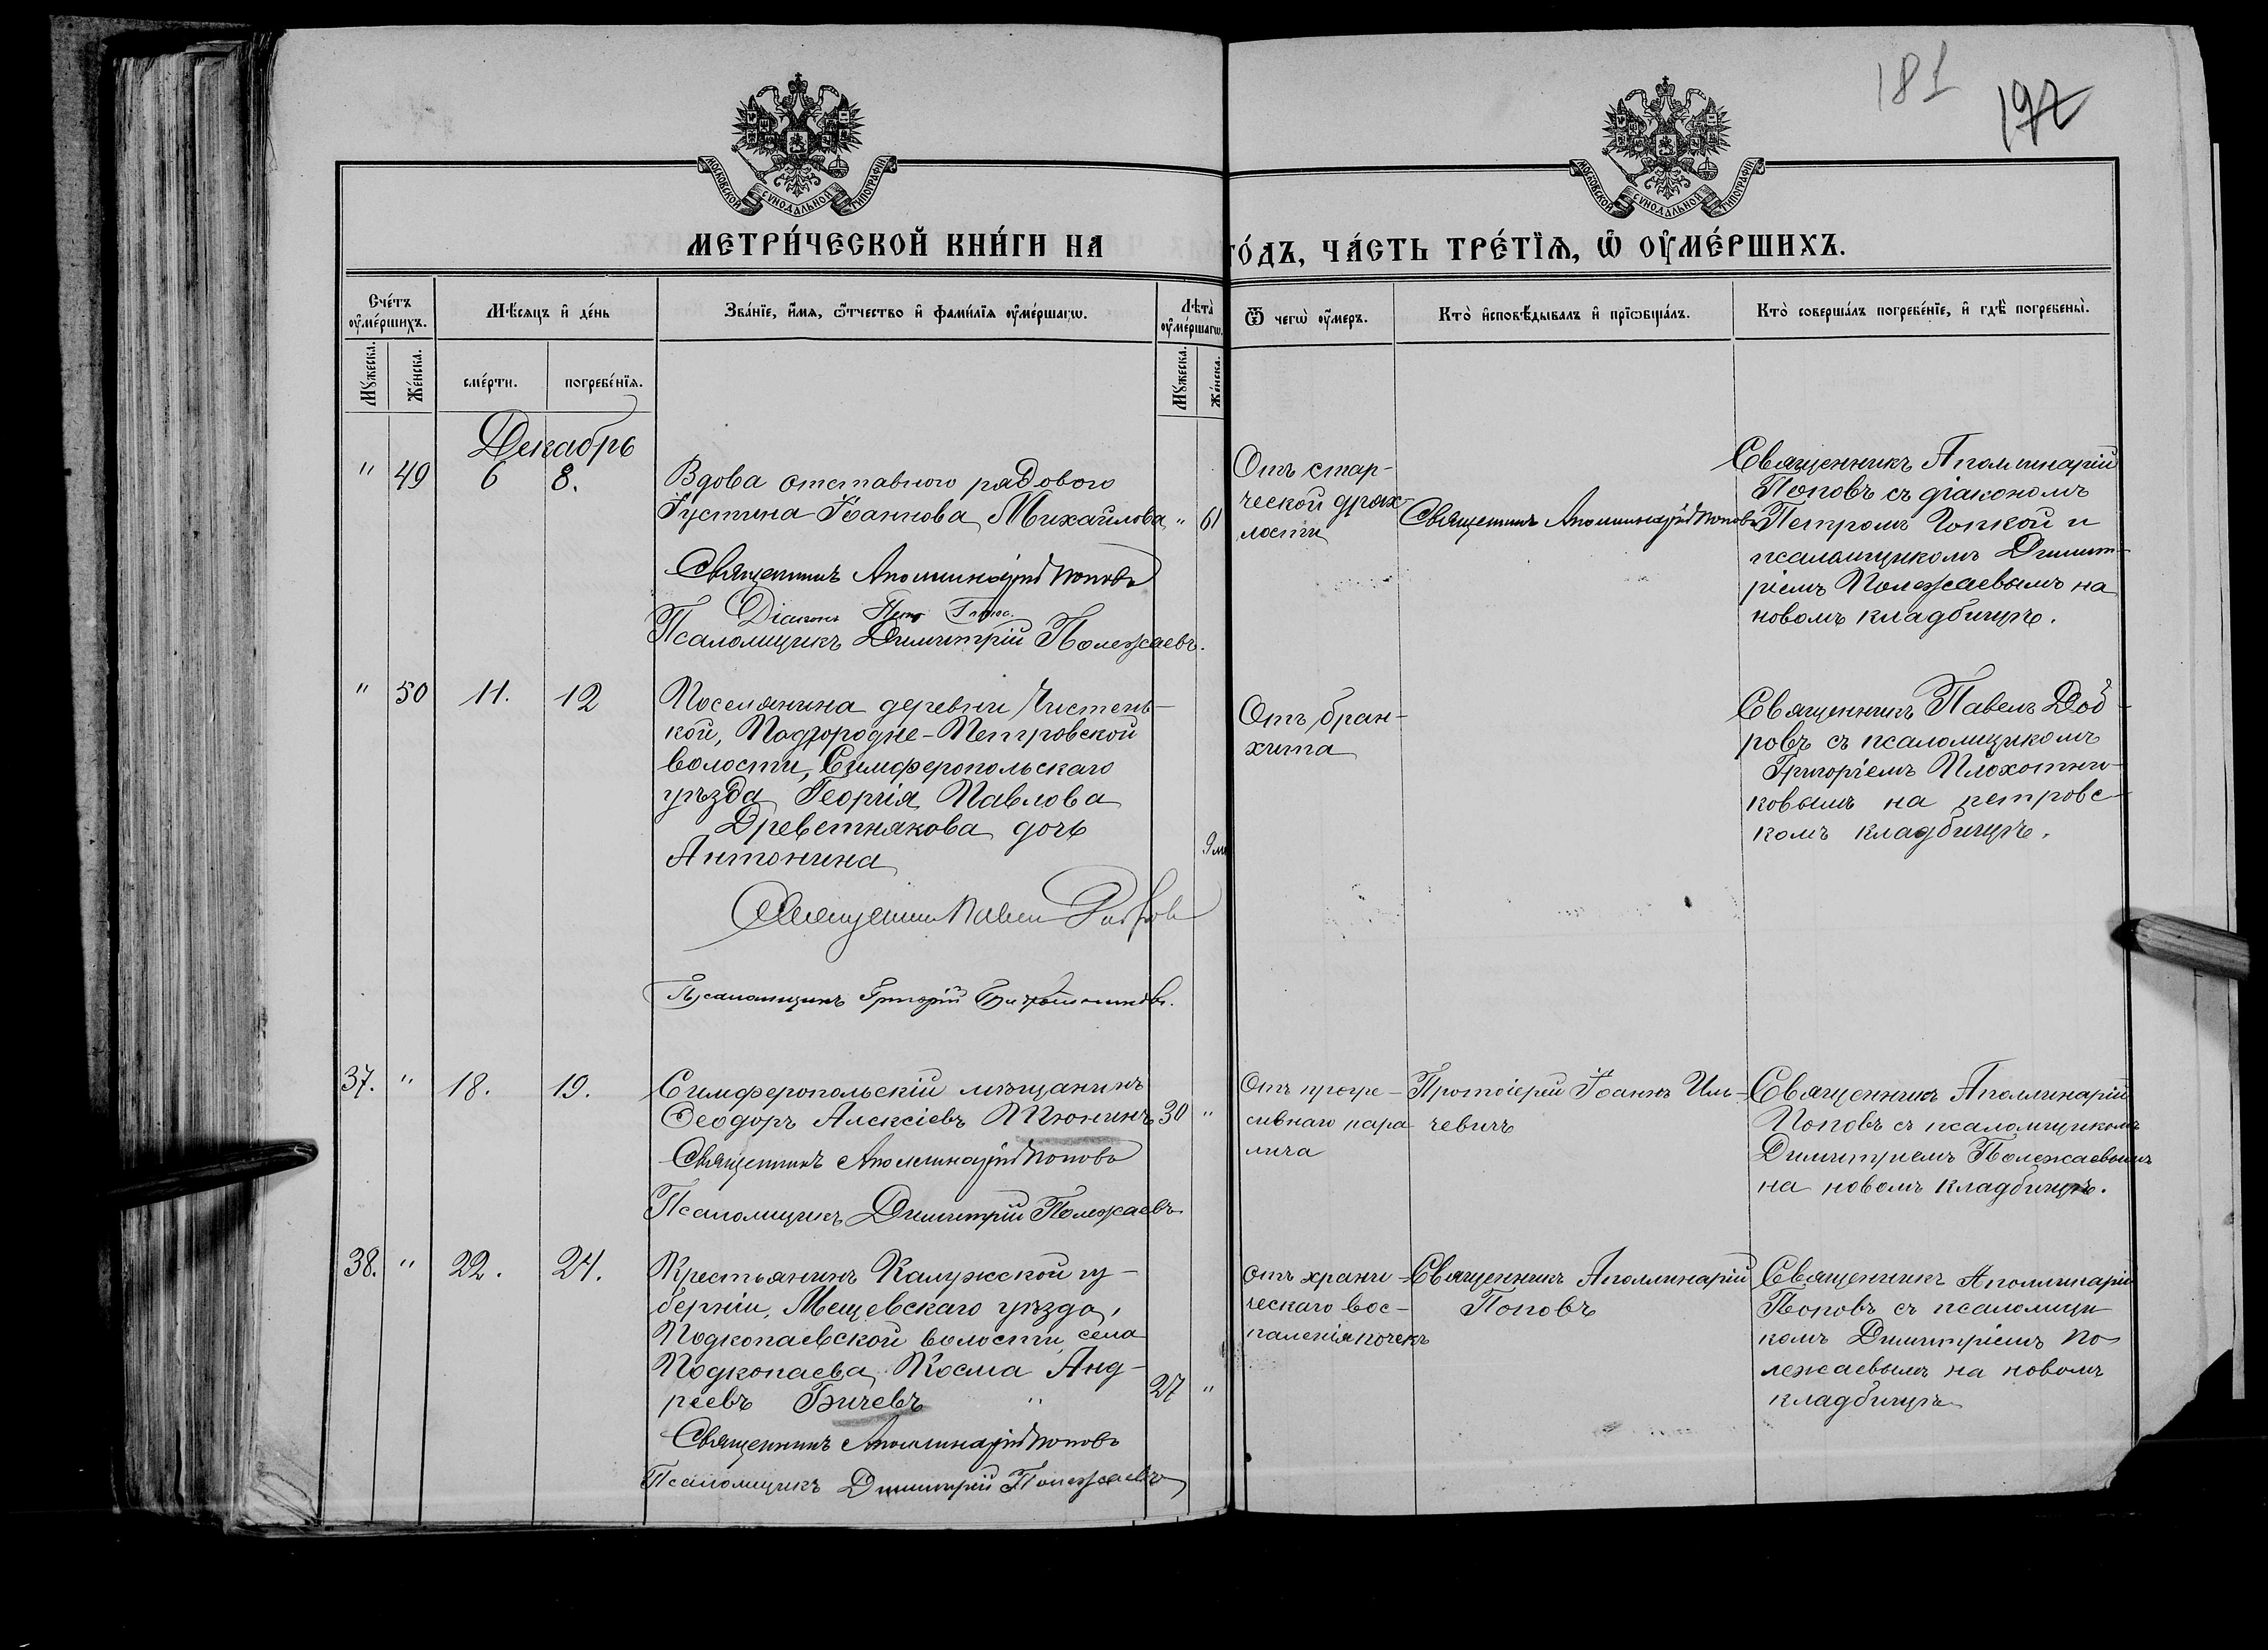 181
197
МОСКОВСКОЙ СѴНОДАЛЬНОЙ ТИПОГРАФІИ
МОСКОВСКОЙ СѴНОДАЛЬНОЙ ТИПОГРАФІИ
МЕТРИ́ЧЕСКОЙ КНИ́ГИ НА
ГО́ДЪ, ЧА́СТЬ ТРЕ́ТІѦ, Ѡ҆ ОУ҆МЕ́РШИХЪ.
Сче́тъ оу҆ме́ршихъ.
Мѣ́сяцъ и҆ де́нь
Зва́нїе, и҆́мя, ѻ҆́тчество и҆ фами́лїя оу҆ме́ршагѡ.
Лѣта̀ оу҆ме́ршагѡ.
Ѿ чегѡ̀ оу҆́меръ.
Кто̀ и҆сповѣ́дывалъ и҆ прїѡбща́лъ.
Кто̀ соверша́лъ погребе́нїе, и҆ гдѣ̀ погребены̀.
Мꙋ́жеска.
Же́нска.
сме́рти.
погребе́нїя.
Мꙋ́жеска.
Же́нска.
Декабрь
" 49 6 8.
Вдова отставного рядового
Іустина Іоаннова Михайлова " 61
Священникъ Аполлинарій Поповъ
Діаконъ Петръ
Псаломщикъ Димитрій Полежаевъ.
Отъ стар-
ческой дрях-
лости
Священникъ Аполлинарій Поповъ
Священникъ Аполлинарій
Поповъ съ діакономъ
Петромъ Гопкой и
псаломщикомъ Димит-
ріемъ Полежаевымъ на
новомъ кладбищѣ.
" 50 11. 12
Поселянина деревни Чистень-
кой, Подгородне-Петровской
волости, Симферопольскаго
уѣзда Георгія Павлова
Древетнякова дочь
Антонина 9 м
Священникъ Павелъ Добровъ
Псаломщикъ Григорій
Отъ брон-
хита
Священникъ Павелъ Доб-
ровъ съ псаломщикомъ
Григоріемъ Плохотни-
ковымъ на петровс-
комъ кладбищѣ.
37. " 18. 19.
Симферопольскій мѣщанинъ
Ѳеодоръ Алексіевъ Тюнинъ 30 "
Священникъ Аполлинарій Поповъ
Псаломщикъ Димитрій Полежаевъ
Отъ прогре-
сивнаго пара-
лича
Протоіерей Іоаннъ Иль-
чевичъ
Священникъ Аполлинарій
Поповъ съ псаломщикомъ
Димитріемъ Полежаевымъ
на новомъ кладбищѣ.
38. " 22. 24.
Крестьянинъ Калужской гу-
берніи, Мещевскаго уѣзда,
Подкопаевской волости, села
Подкопаева Косма Анд-
реевъ Бичевъ " 27 "
Священникъ Аполлинарій Поповъ
Псаломщикъ Димитрій Полежаевъ
Отъ хрони-
ческаго вос-
паленія почекъ
Священникъ Аполлинарій
Поповъ
Священникъ Аполлинарій
Поповъ съ псаломщи-
комъ Димитріемъ По-
лежаевымъ на новомъ
кладбищѣ